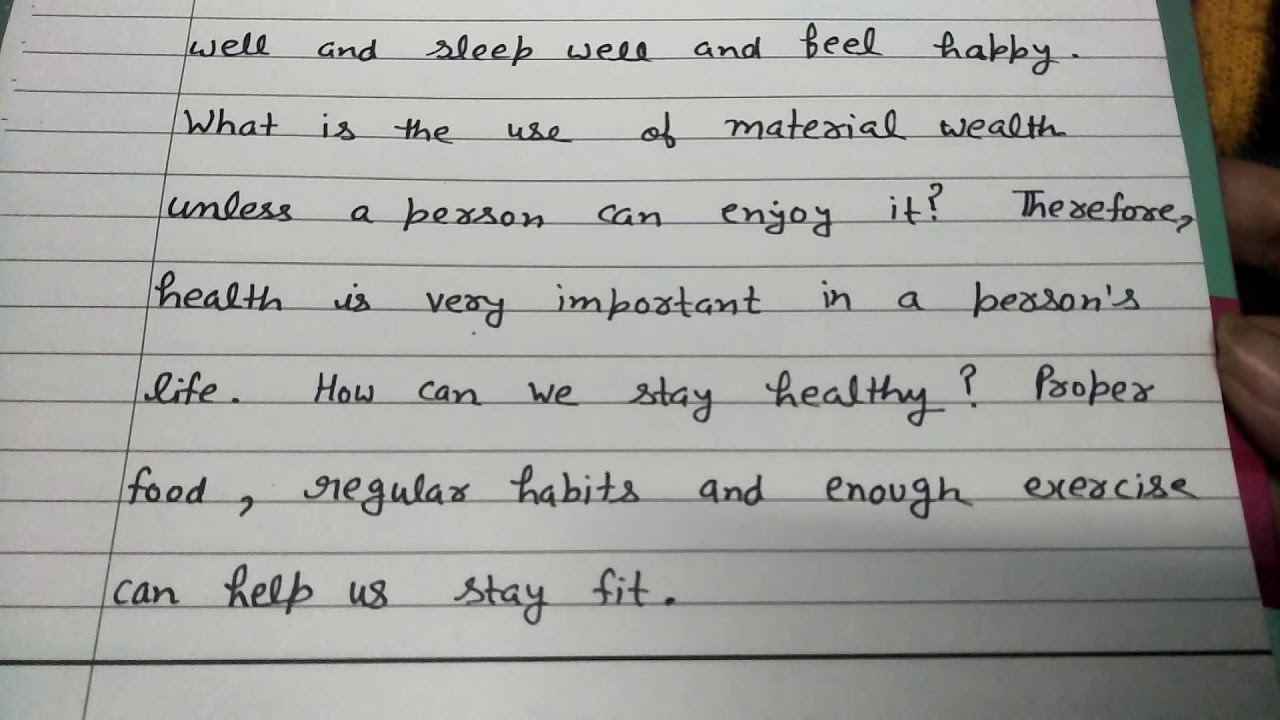 well and sleep well and feel happy.
What is the use of material wealth
unless a person can enjoy it? Therefore,
health is very important in a person's
life. How can we stay healthy? Proper
food, regular habits and enough exercise
can help us stay fit.